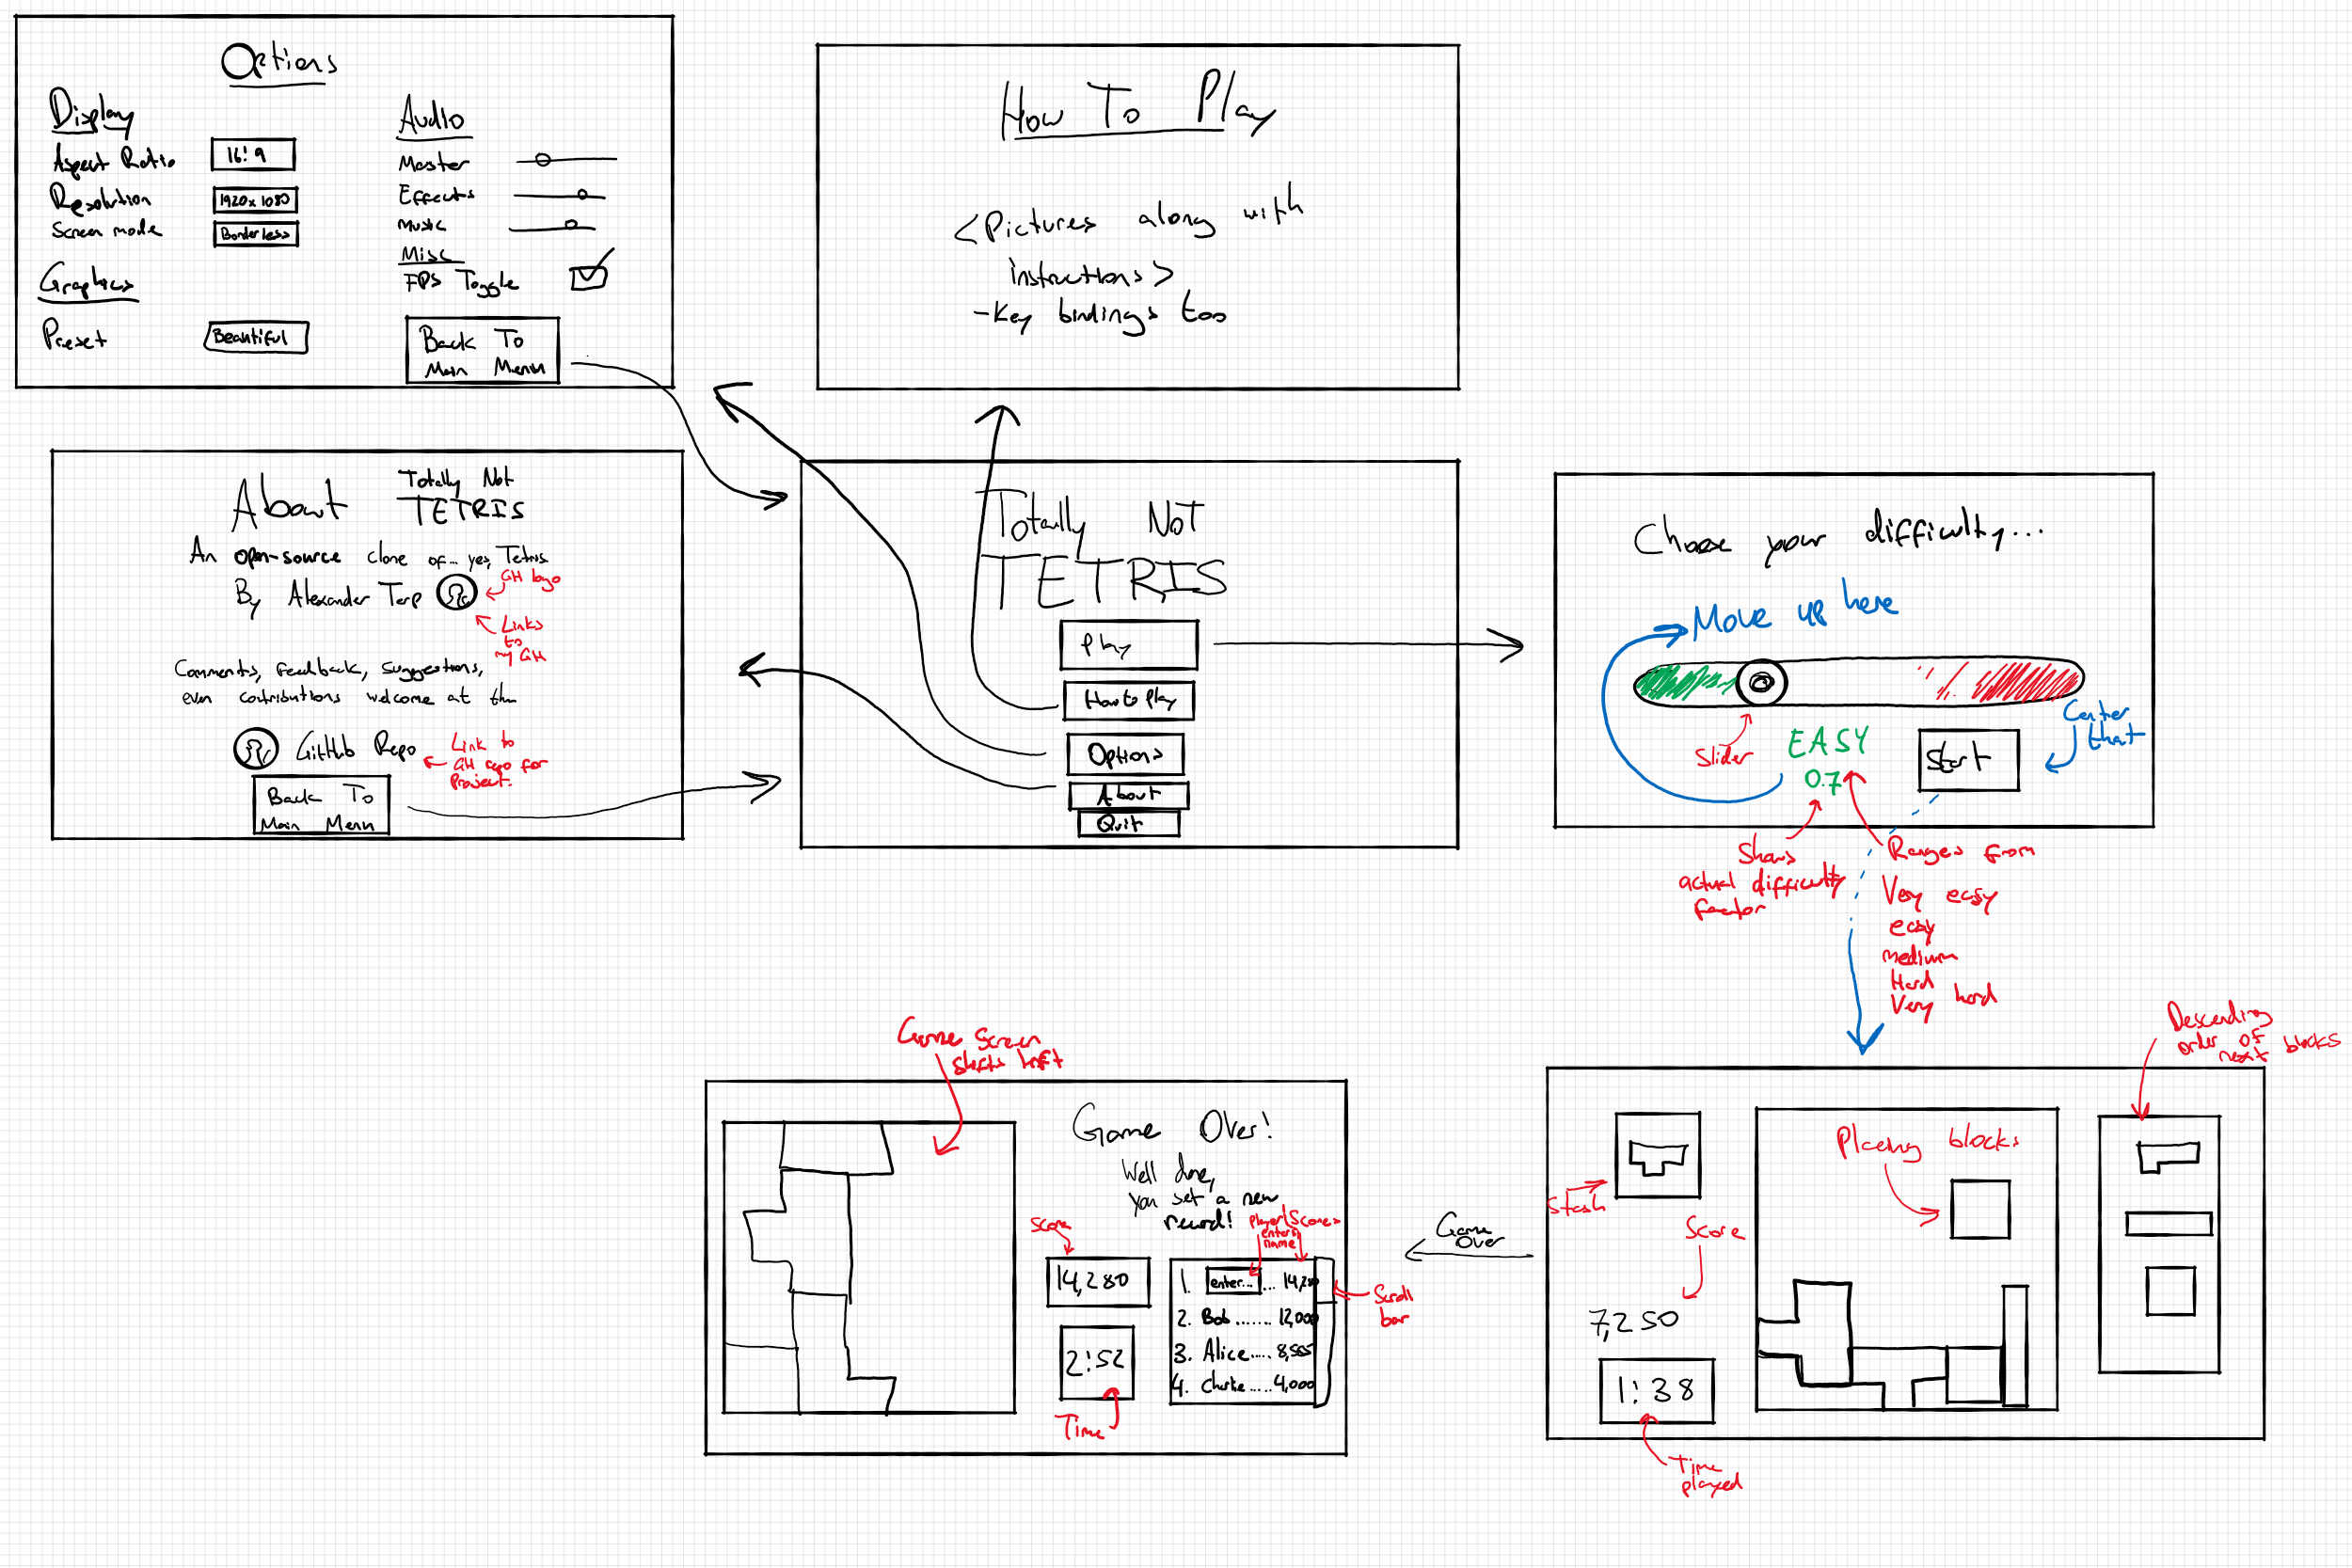 Options
Display
Aspect Ratio
16:9
Resolution
1920x1080
Screen mode
Borderless
Graphics
Preset
Beautiful
Audio
Master
Effects
Music
Misc
FPS Toggle
Back To
Main Menu
How To Play
<Pictures along with
instructions>
-Key bindings too
About
Totally Not
TETRIS
An open-source clone of... yes, Tetris
By Alexander Terp
GH logo
Links
to
my GH
Comments, feedback, suggestions,
even contributions welcome at the
GitHub Repo
Link to
GH repo for
Project.
Back To
Main Menu
Totally NoT
TETRIS
Play
How to Play
Options
About
Quit
Choose your difficulty...
Move up here
Slider
EASY
0.7
Start
Center
that
Shows
actual difficulty
factor
Ranges from
Very easy
easy
medium
Hard
Very hard
Game Screen
shifts left
Game Over!
Well done,
you set a new
record!
Score
14,280
2:52
Time
Player
enters
name
Scores
1. enter... ... 14,280
2. Bob ....... 12,000
3. Alice..... 8,565
4. Charlie ..... 4,000
Scroll
bar
Game
Over
Descending
order of
next blocks
Stash
Placing blocks
Score
7,250
1:38
Time
played